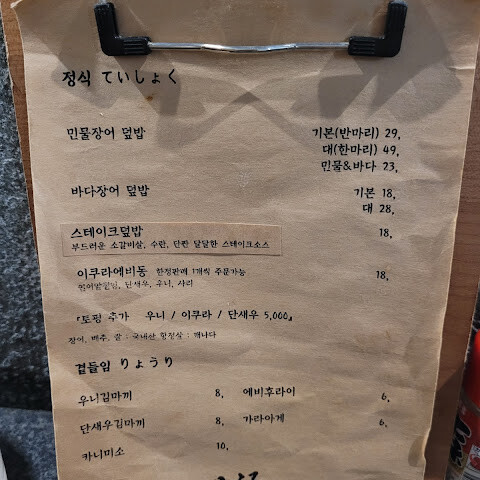 정식 ていしょく
민물장어 덮밥 기본(반마리) 29,
대(한마리) 49,
민물&바다 23,
바다장어 덮밥 기본 18,
대 28,
스테이크덮밥 18,
부드러운 소갈비살, 수란, 단짠 달달한 스테이크소스
이쿠라에비동 한정판매 1개씩 주문가능 18,
단새우, 우니, 사리
『토핑 추가 우니 / 이쿠라 / 단새우 5,000』
장어, 배추, 쌀 : 국내산 항정살 : 캐나다
곁들임 りょうり
우니김마끼 8, 에비후라이 6,
단새우김마끼 8, 가라아게 6,
카니미소 10,